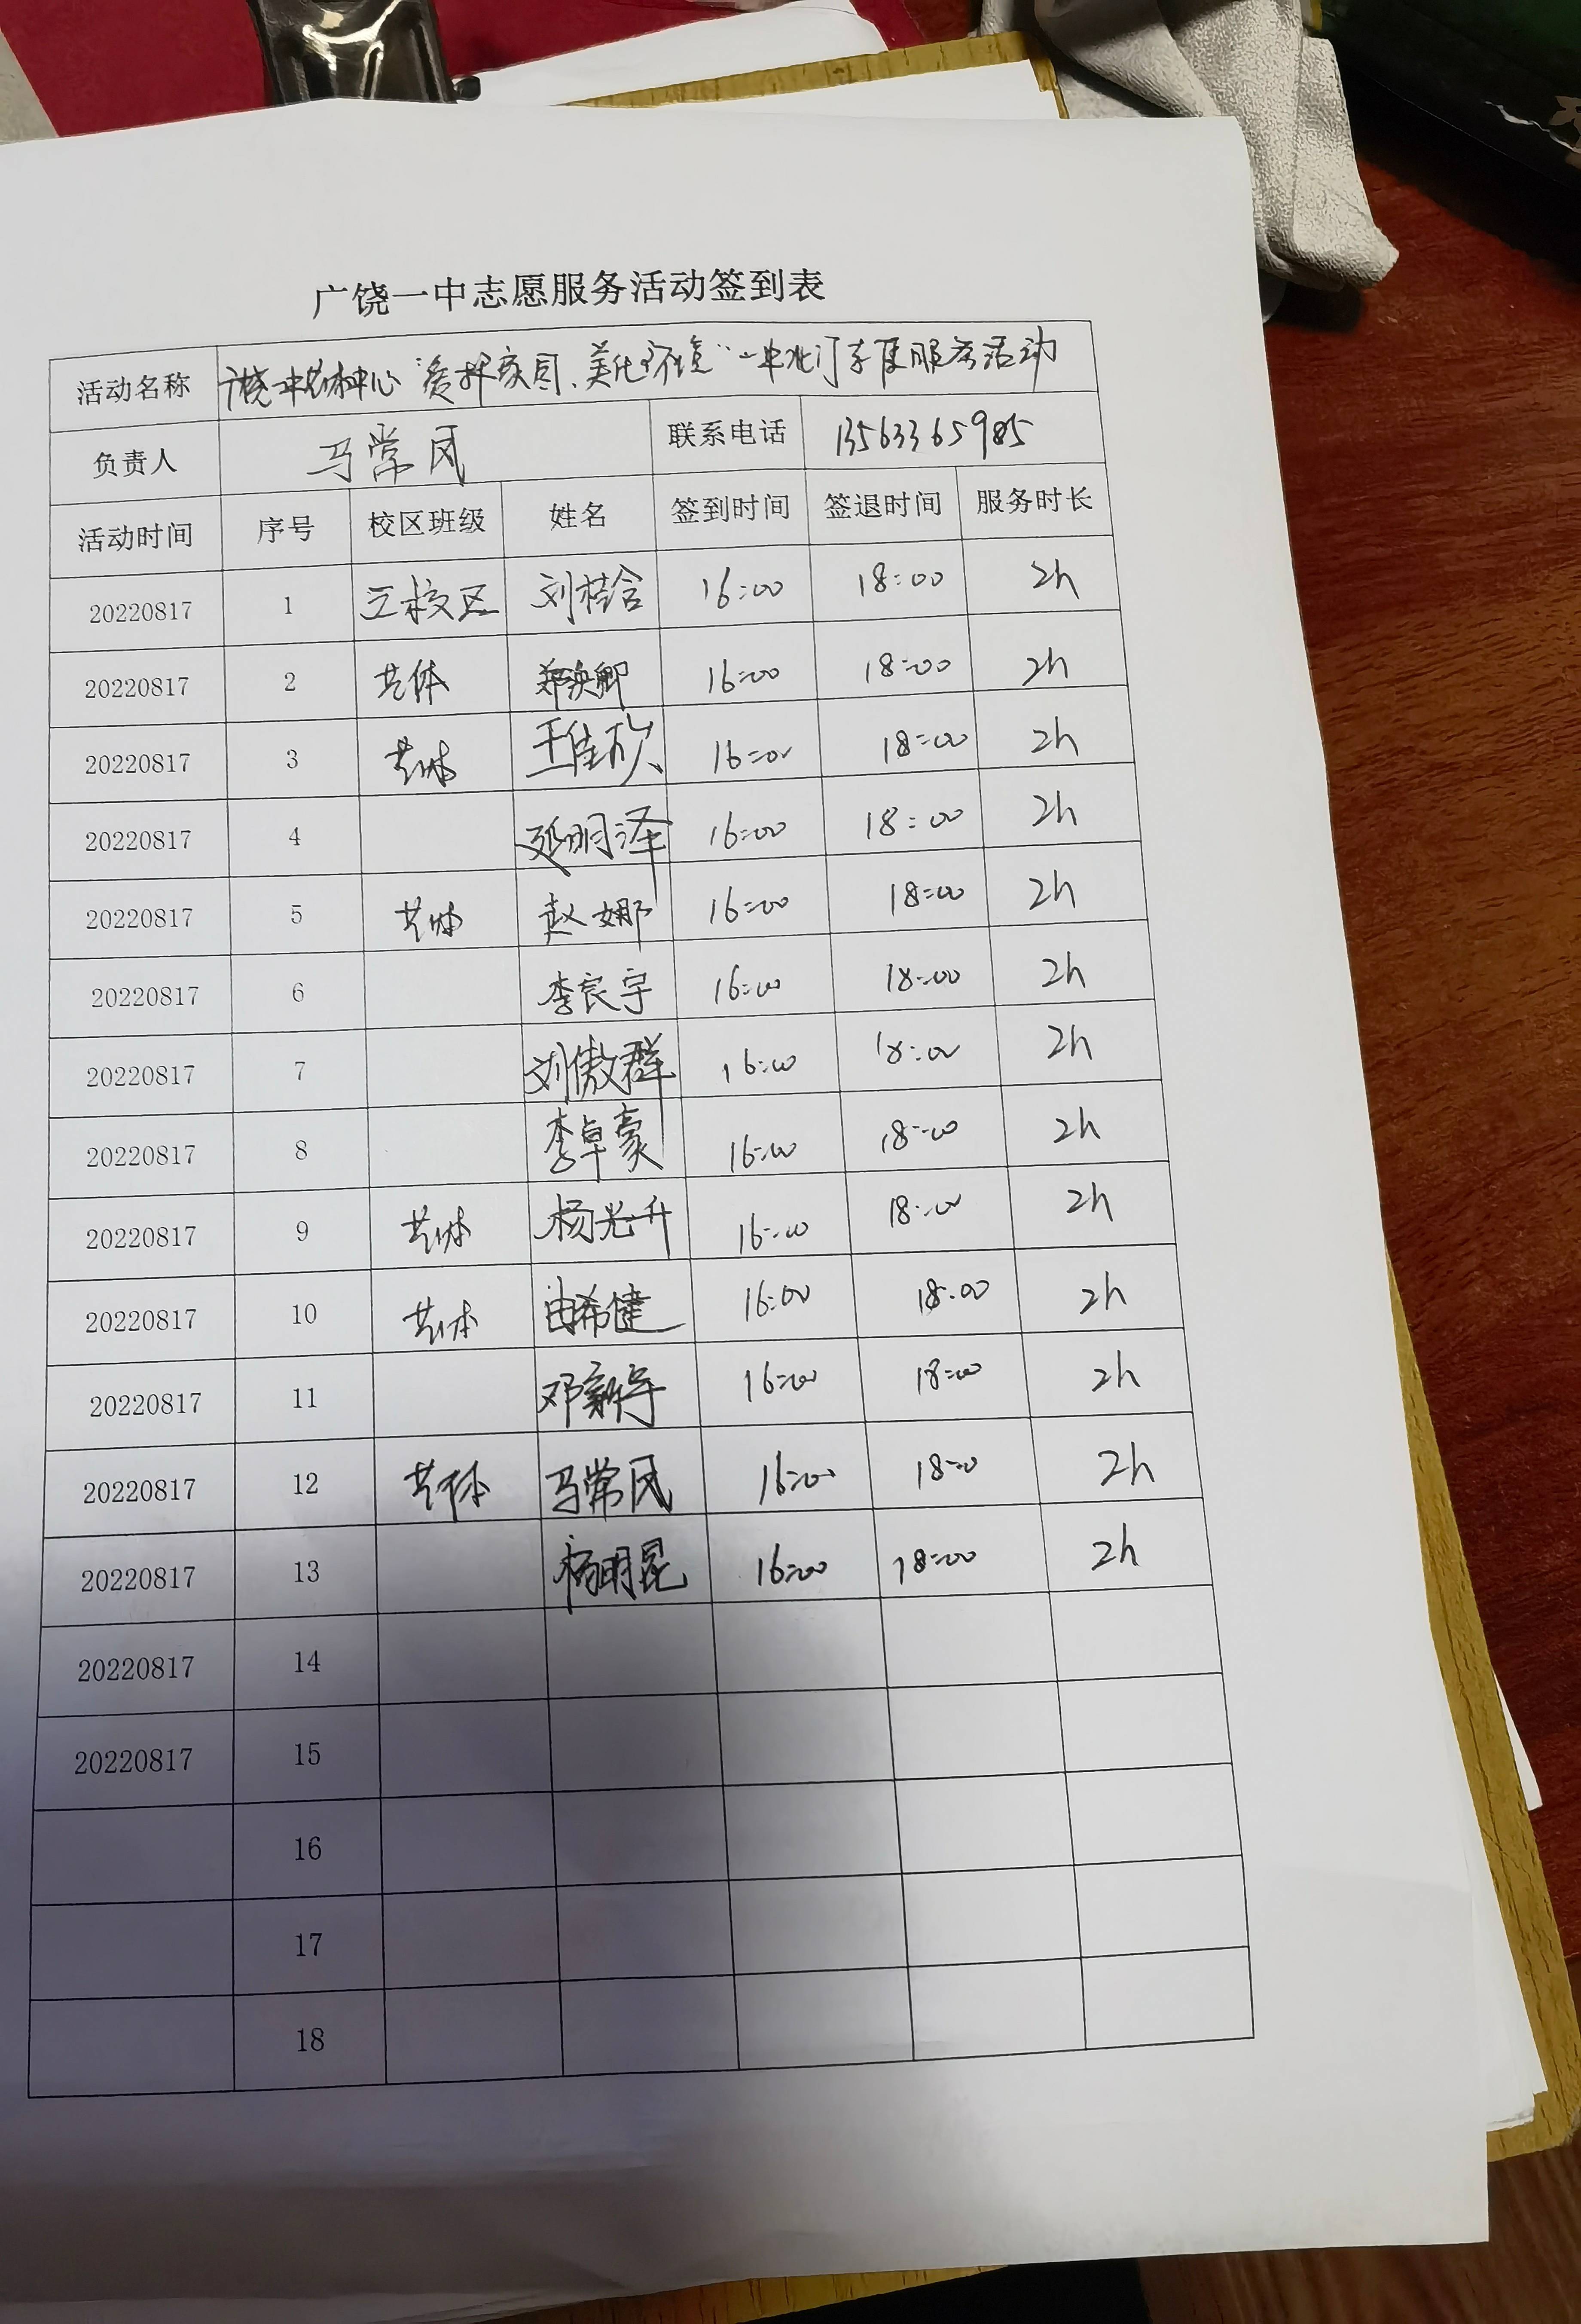 广饶一中志愿服务活动签到表
活动名称 中心 家园、美化环境" 一中北门 服务活动
负责人 马常风 联系电话 13563365985
活动时间 序号 校区班级 姓名 签到时间 签退时间 服务时长
20220817 1 三校区 刘桂含 16:00 18:00 2h
20220817 2 艺体 郑焕卿 16:00 18:00 2h
20220817 3 艺体 王佳 16:00 18:00 2h
20220817 4 明泽 16:00 18:00 2h
20220817 5 艺体 赵娜 16:00 18:00 2h
20220817 6 李宸宇 16:00 18:00 2h
20220817 7 刘傲群 16:00 18:00 2h
20220817 8 李卓豪 16:00 18:00 2h
20220817 9 艺体 杨光升 16:00 18:00 2h
20220817 10 艺体 由希健 16:00 18:00 2h
20220817 11 邓新宇 16:00 18:00 2h
20220817 12 艺体 马常风 16:00 18:00 2h
20220817 13 杨明昆 16:00 18:00 2h
20220817 14
20220817 15
16
17
18